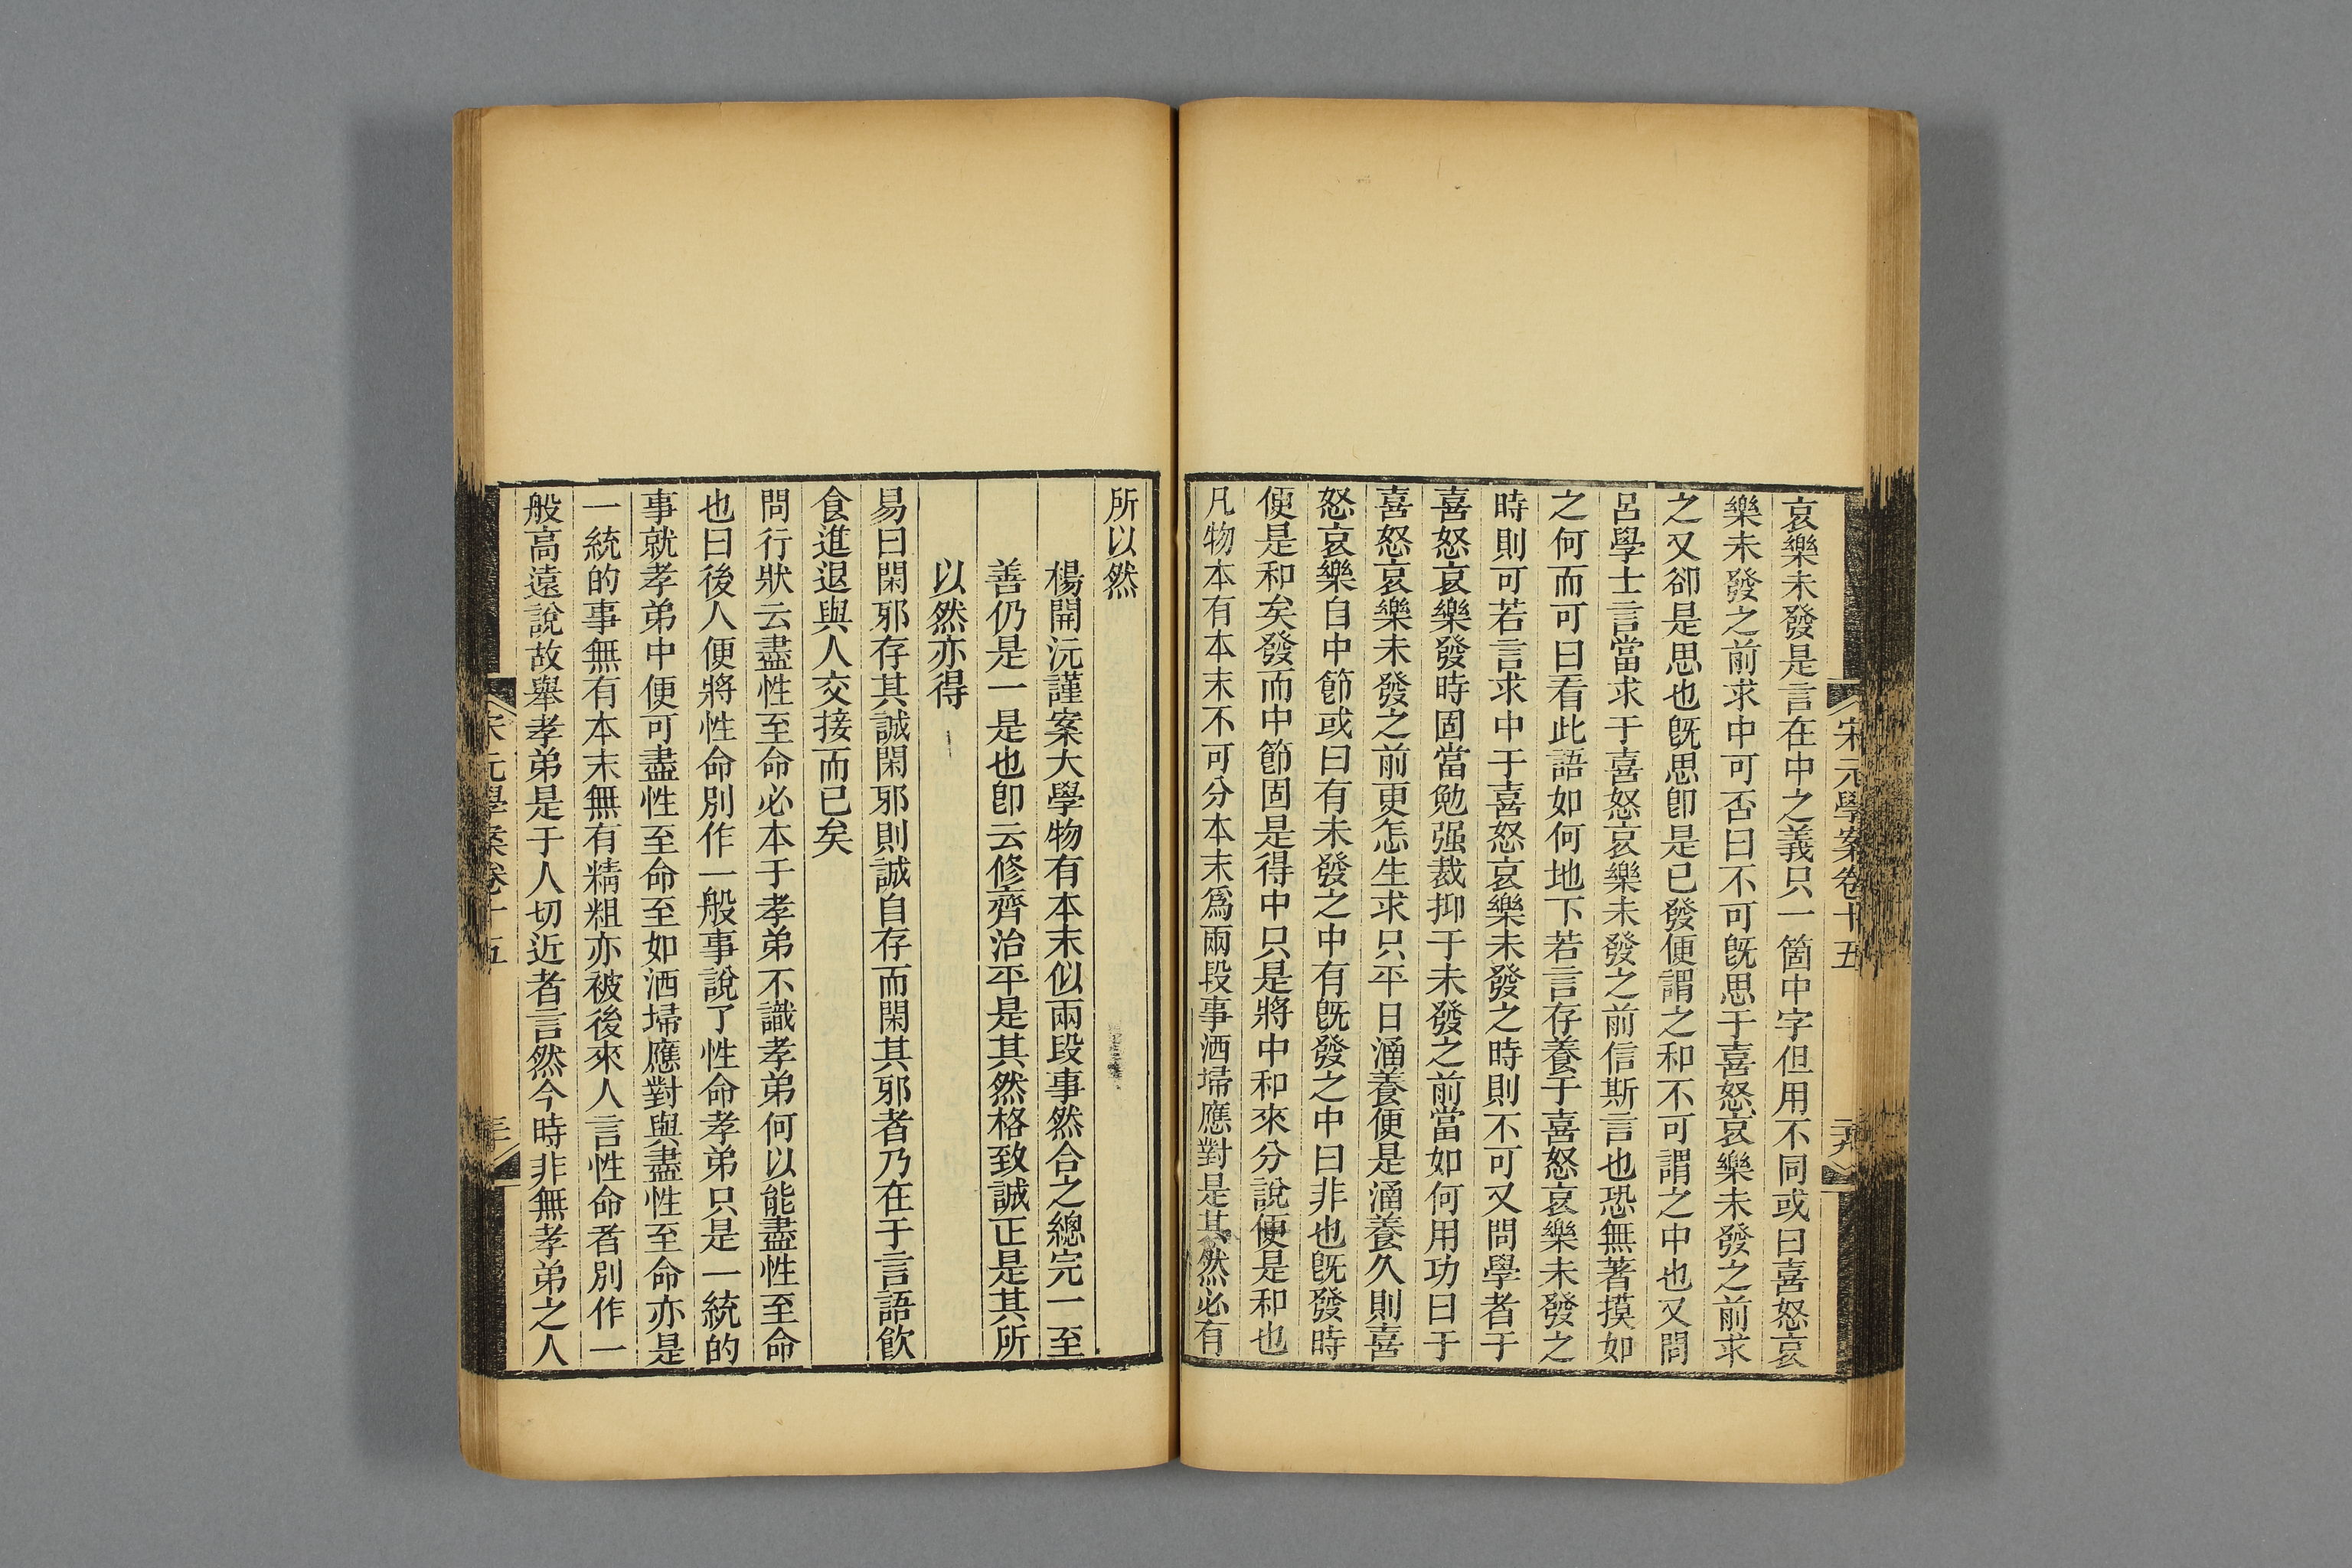 宋元學案卷十五
哀樂未發是言在中之義只一箇中字但用不同或曰喜怒哀
樂未發之前求中可否曰不可既思于喜怒哀樂未發之前求
之又卻是思也既思卽是已發便謂之和不可謂之中也又問
呂學士言當求于喜怒哀樂未發之前信斯言也恐無著摸如
之何而可曰看此語如何地下若言存養于喜怒哀樂未發之
時則可若言求中于喜怒哀樂未發之時則不可又問學者于
喜怒哀樂發時固當勉强裁抑于未發之前當如何用功曰于
喜怒哀樂未發之前更怎生求只平日涵養便是涵養久則喜
怒哀樂自中節或曰有未發之中有既發之中曰非也既發時
便是和矣發而中節固是得中只是將中和來分說便是和也
凡物本有本末不可分本末爲兩段事洒埽應對是其然必有
所以然
楊開沅謹案大學物有本末似兩段事然合之總完一至
善仍是一是也卽云修齊治平是其然格致誠正是其所
以然亦得
易曰閑邪存其誠閑邪則誠自存而閑其邪者乃在于言語飮
食進退與人交接而已矣
問行狀云盡性至命必本于孝弟不識孝弟何以能盡性至命
也曰後人便將性命別作一般事說了性命孝弟只是一統的
事就孝弟中便可盡性至命至如洒埽應對與盡性至命亦是
一統的事無有本末無有精粗亦被後來人言性命者別作一
般高遠說故舉孝弟是于人切近者言然今時非無孝弟之人
宋元學案卷十五